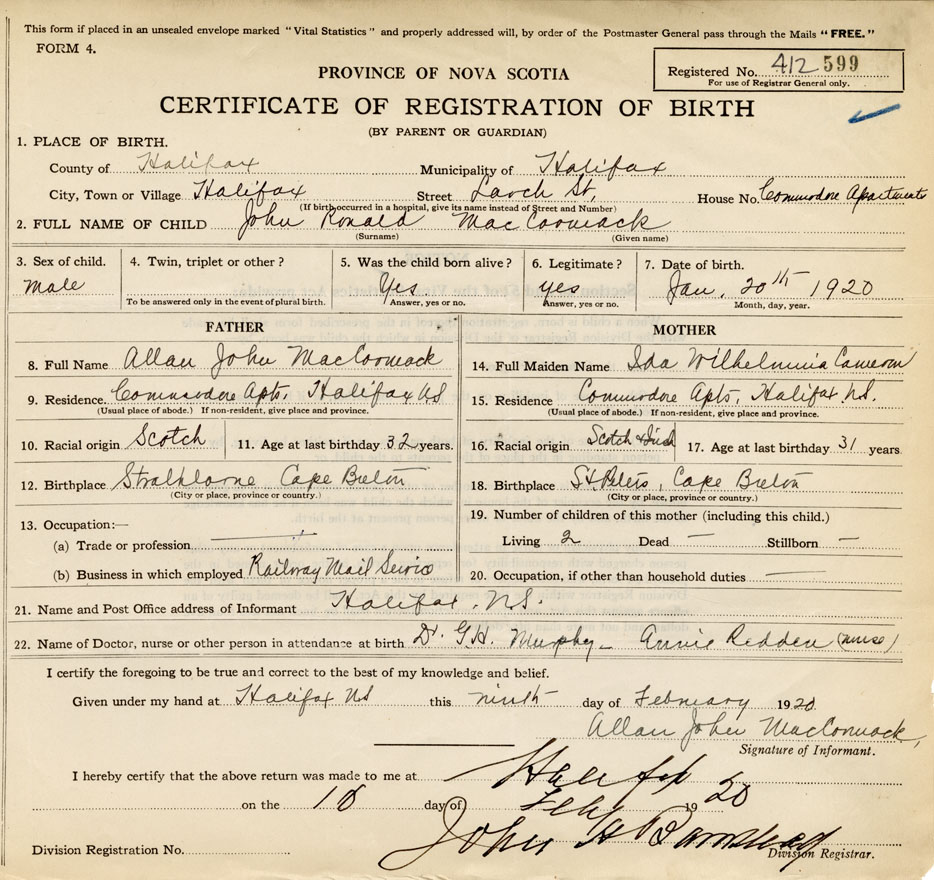 This form if placed in an unsealed envelope marked "Vital Statistics" and properly addressed will, by order of the Postmaster General pass through the Mails "FREE."
FORM 4.
PROVINCE OF NOVA SCOTIA
Registered No. 412 599
For use of Registrar General only.
CERTIFICATE OF REGISTRATION OF BIRTH
(BY PARENT OR GUARDIAN)
1. PLACE OF BIRTH.
County of Halifax Municipality of Halifax
City, Town or Village Halifax Street Larch St, House No. Commodore Apartments
(If birth occurred in a hospital, give its name instead of Street and Number)
2. FULL NAME OF CHILD John Ronald MacCormack
(Surname) (Given name)
3. Sex of child. 4. Twin, triplet or other? 5. Was the child born alive? 6. Legitimate? 7. Date of birth.
Male Yes yes Jan. 20th 1920
To be answered only in the event of plural birth. Answer, yes or no. Answer, yes or no. Month, day, year.
FATHER MOTHER
8. Full Name Allan John MacCormack 14. Full Maiden Name Ida Wilhelmina Cameron
9. Residence Commodore Apts, Halifax NS 15. Residence Commodore Apts, Halifax NS.
(Usual place of abode.) If non-resident, give place and province. (Usual place of abode.) If non-resident, give place and province.
10. Racial origin Scotch 11. Age at last birthday 32 years. 16. Racial origin Scotch & Irish 17. Age at last birthday 31 years
12. Birthplace Strathlorne Cape Breton 18. Birthplace St. Peters, Cape Breton
(City or place, province or country.) (City or place, province or country.)
13. Occupation:— 19. Number of children of this mother (including this child.)
(a) Trade or profession — Living 2 Dead — Stillborn —
(b) Business in which employed Railway Mail Service 20. Occupation, if other than household duties —
21. Name and Post Office address of Informant Halifax. N.S.
22. Name of Doctor, nurse or other person in attendance at birth Dr. G.H. Murphy - Annie Redden (nurse)
I certify the foregoing to be true and correct to the best of my knowledge and belief.
Given under my hand at Halifax NS this ninth day of February 1920
Allan John MacCormack,
Signature of Informant.
I hereby certify that the above return was made to me at Halifax
on the 10 day of Feby 1920
John H Barnstead
Division Registration No. Division Registrar.